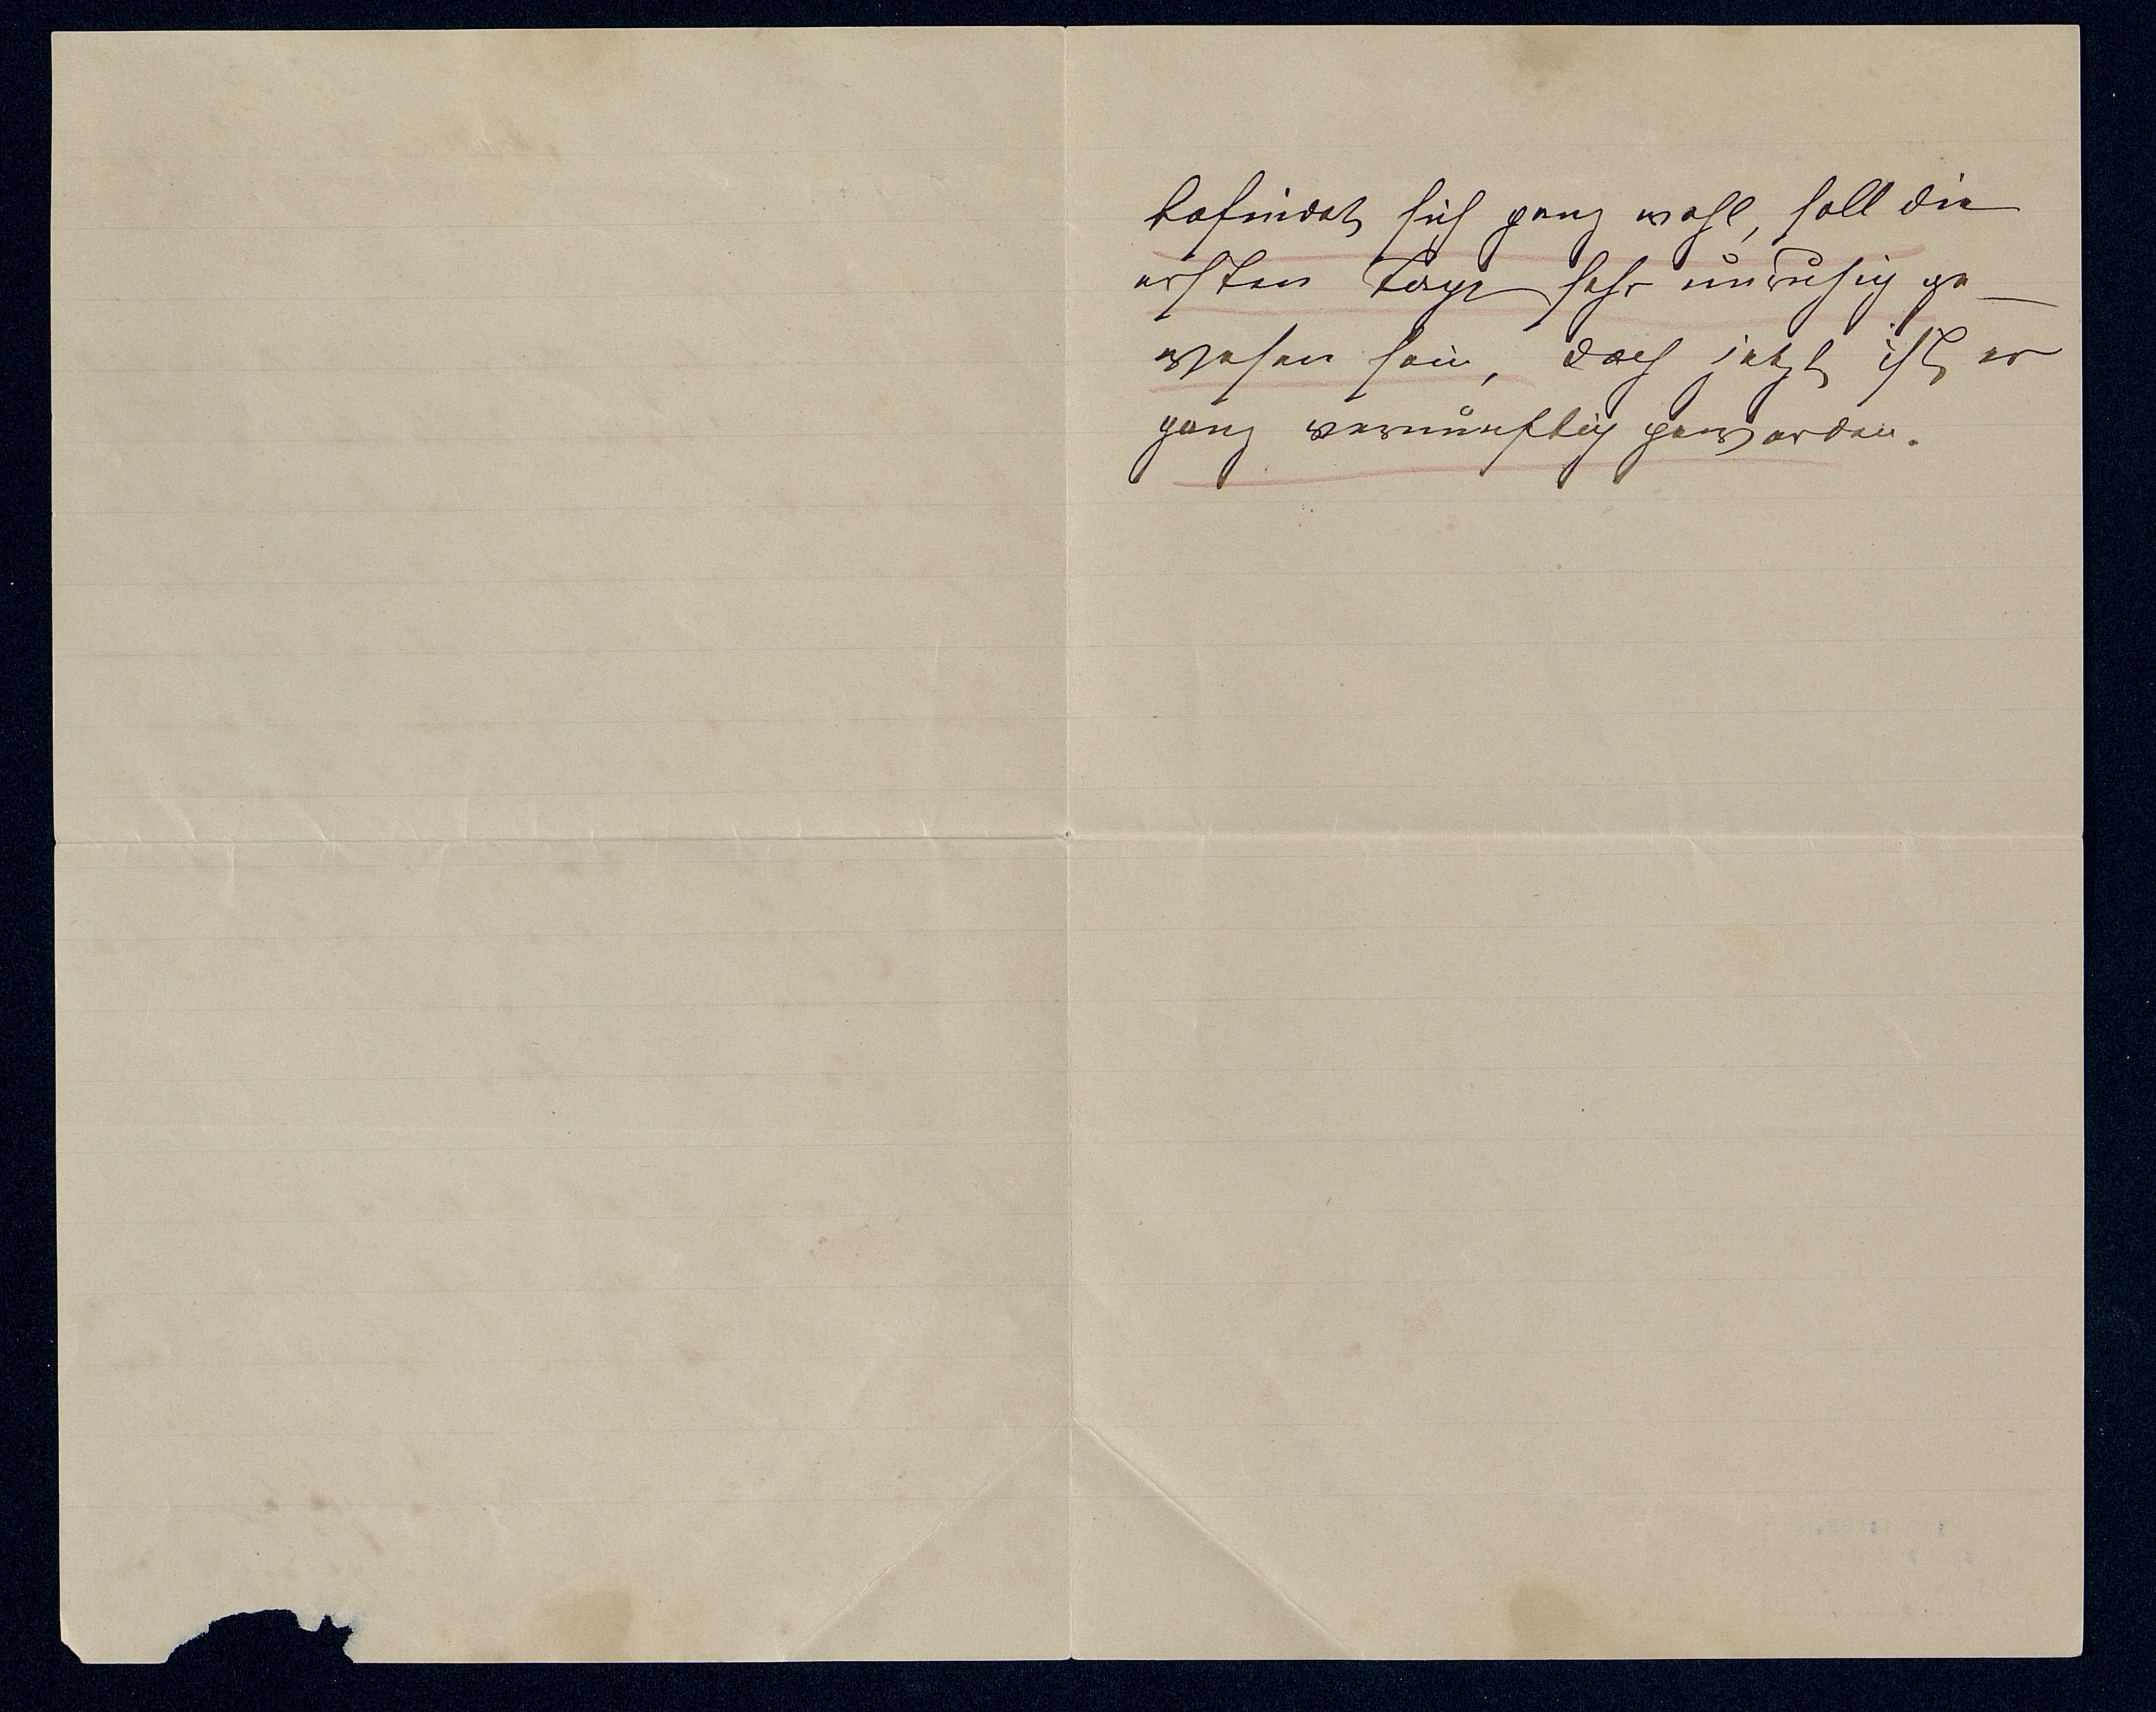 befindet sich ganz wohl, soll die
ersten Tage sehr unruhig ge-
wesen sein, doch jetzt ist er
ganz vernünftig geworden.